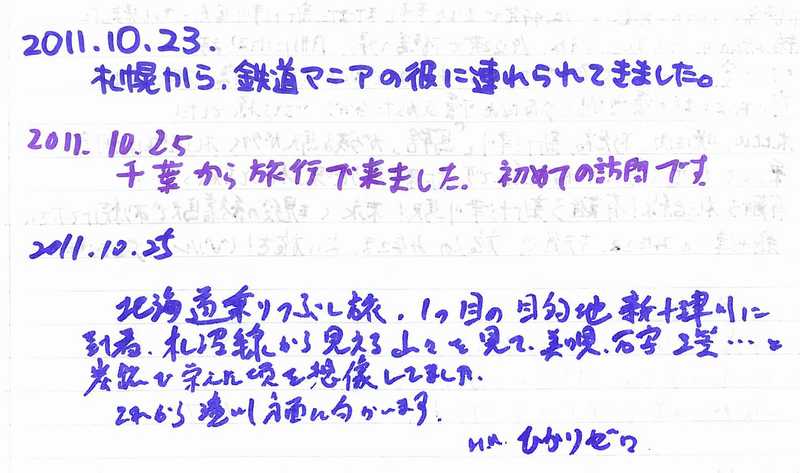 2011.10.23.
札幌から、鉄道マニアの彼に連れられてきました。
2011.10.25
千葉から旅行で来ました。初めての訪問です
2011.10.25
北海道乗りつぶし旅、1つ目の目的地新十津川に
到着、札沼線から見える山々を見て、美唄、 … と
炭鉱で栄えた頃を想像してました。
これから滝川方面に向かいます。
H.N. ひかりゼロ